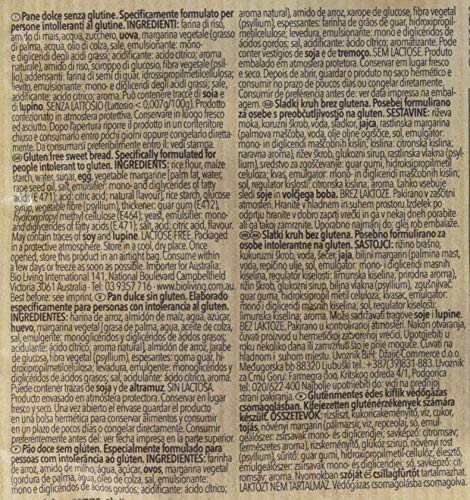 Pane dolce senza glutine. Specificamente formulato per
persone intolleranti al glutine. INGREDIENTI: farina di riso,
amido di mais, acqua, zucchero, uova, margarina vegetale (grasso
di palma, acqua, olio di colza, sale, emulsionante: mono-
e digliceridi degli acidi grassi; acidificante: acido citrico; aroma
naturale), amido di riso, sciroppo di glucosio, fibra vegetale (psil-
lio), addensanti: farina di semi di guar, idrossipropilmetilcellulosa;
lievito, emulsionante: mono- e digliceridi degli acidi grassi; sale,
acidificante: acido citrico; aroma. Può contenere tracce di soia e
di lupino. SENZA LATTOSIO (Lattosio < 0,007g/100g). Prodotto
confezionato in atmosfera protettiva. Conservare in luogo fresco
ed asciutto. Dopo l'apertura riporre il prodotto in un contenitore
chiuso e consumarlo entro pochi giorni oppure congelarlo direttamente.
Da consumarsi preferibilmente entro il: vedi stampa.
Gluten free sweet bread. Specifically formulated for
people intolerant to gluten. INGREDIENTS: rice flour, maize
starch, water, sugar, egg, vegetable margarine (palm fat, water,
rape seed oil, salt, emulsifier: mono- and diglycerides of fatty
acids (E 471); acid: citric acid; natural flavour), rice starch, glucose
syrup, vegetable fibre (psyllium), thickener: guar gum (E412),
hydroxypropyl methyl cellulose (E464); yeast, emulsifier: mono-
and diglycerides of fatty acids (E471); salt, acid: citric acid, flavour.
May contain traces of soy and lupine. LACTOSE-FREE. Packaged
in a protective atmosphere. Store in a cool, dry place. Once
opened, store this product in an airtight bag. Consume within
a few days or freeze as soon as possible. Importer for Australia:
Bio Living International 141, National Boulevard Campbellfield
Victoria 3061 Australia - Tel: 03 9357 716 - www.bioliving.com
Best before: see imprint. Pan dulce sin gluten. Elaborado
específicamente para personas con intolerancia al gluten.
INGREDIENTES: harina de arroz, almidón de maíz, agua, azúcar,
huevo, margarina vegetal (grasa de palma, agua, aceite de colza,
sal, emulgente: monoglicéridos y diglicéridos de ácidos grasos;
acidulante: ácido cítrico; aroma natural), almidón de arroz, jarabe
de glucosa, fibra vegetal (psyllium), espesantes: goma guar, hi-
droxipropilmetilcelulosa; levadura, emulgente: monoglicéridos
y diglicéridos de ácidos grasos; sal, acidulante: ácido cítrico, aroma.
Puede contener trazas de soja y de altramuz. SIN LACTOSA.
Producto envasado en atmósfera protectora. Conservar en lugar
fresco y seco. Una vez abierto el envase guardar el producto
en una bolsa hermética y consumir
en un plazo de pocos días o congelar directamente. Consumir
preferentemente antes del: ver fecha impresa en la parte superior.
Pão doce sem glúten. Especialmente formulado para
pessoas com intolerância ao glúten. INGREDIENTES: farinha
de arroz, amido de milho, água, açúcar, ovos, margarina vegetal
(gordura de palma, água, óleo de colza, sal, emulsionante:
mono e diglicéridos de ácidos gordos, acidificante: ácido cítrico;
aroma natural), amido de arroz, xarope de glucose, fibra vegetal
(psyllium), espessantes: farinha de grãos de guar, hidroxipropil-
metilcelulose; levedura, emulsionante: mono e diglicéridos de
ácidos gordos; sal, acidificante: ácido cítrico; aromatizante. Pode
conter vestígios de soja e de tremoço. SEM LACTOSE. Produto
embalado em atmosfera protetora. Conservar em lugar fresco
e seco. Depois de abrir, guardar o produto no saco hermético e
consumir no prazo de poucos dias ou congelar diretamente.
Consumir de preferência antes de: ver data impressa na embalagem.
Sladki kruh brez glutena. Posebej formulirano
za osebe s preobčutljivostjo na gluten. SESTAVINE: riževa
moka, koruzni škrob, voda, sladkor, jajca, rastlinska margarina
(palmova maščoba, voda, olje oljne ogrščice, sol, emulgator:
mono- in digliceridi maščobnih kislin; kislina: citronska kislina;
naravna aroma), rižev škrob, glukozni sirup, rastlinska vlaknina
(psyllium), sredstvo za zgoščevanje: guar gumi, hidroksipropil metilceluloza;
kvas, emulgator: mono- in digliceridi maščobnih kislin;
sol, regulator kislosti: citronska kislina, aroma. Lahko vsebuje
sledi soje in volčjega boba. BREZ LAKTOZE. Pakirano v zaščitni
atmosferi. Hranite v hladnem in suhem mestu. Izdelek po odprtju
hranite v dobro zaprti vrečki in ga v nekaj dneh porabite
ali ga takoj zamrznite. Uporabno najmanj do: glej odtis na embalaži.
Slatki kruh bez glutena. Posebno formulirano za
osobe intolerantne na gluten. SASTOJCI: rižino brašno,
kukuruzni škrob, voda, šećer, jaja, biljni margarin (palmina mast,
voda, repičino ulje, sol, emulgator: mono- i digliceridi masnih
kiselina, regulator kiselosti: limunska kiselina; prirodna aroma),
rižin škrob, glukozni sirup, biljna vlakna (psyllium), zgušnjivač:
guar guma, hidroksipropil metil celuloza; kvasac, emulgator:
mono- i digliceridi masnih kiselina, sol, regulator kiselosti:
limunska kiselina, aroma. Može sadržavati tragove soje i lupine.
BEZ LAKTOZE. Pakirano u kontroliranoj atmosferi. Nakon otvaranja,
proizvod čuvati u dobro zatvorenoj vrećici. Upotrijebiti u
roku nekoliko dana ili zamrznuti što je prije moguće. Čuvati na
hladnom i suhom mjestu. Uvoznik BiH: Džajić-Commerce d.o.o.
Međugorska bb 88320 Ljubuški - Tel.: +387/39831-883. Uvoznik
za Crnu Goru: Farmegra doo, Kritskog odreda 4/1, Podgorica
tel. 020/622-400 Najbolje upotrijebiti do: vidi na prednji
strani pakiranja. Gluténmentes édes kiflik védőgázas
csomagolásban. Kifejezetten gluténérzékenyek számára
készült. ÖSSZETEVŐK: rizsliszt, kukoricakeményítő, víz, cukor,
tojás, növényi margarin (pálmazsír, víz, repceolaj, só, emulgeálószer:
zsírsavak mono- és digliceridjei; savképző: citromsav;
természetes aroma), rizskeményítő, glükóz szirup, növényi rost
(psyllium), sűrítőanyag: guargumi, hidroxipropil-metil-cellulóz;
élesztő, emulgeálószer: zsírsavak mono- és digliceridjei; só,
savképző: citromsav, aroma. Nyomokban szóját és csillagfürtöt tartalmazhat.
LAKTÓZT NEM TARTALMAZ. Védőgázas csomagolásban.